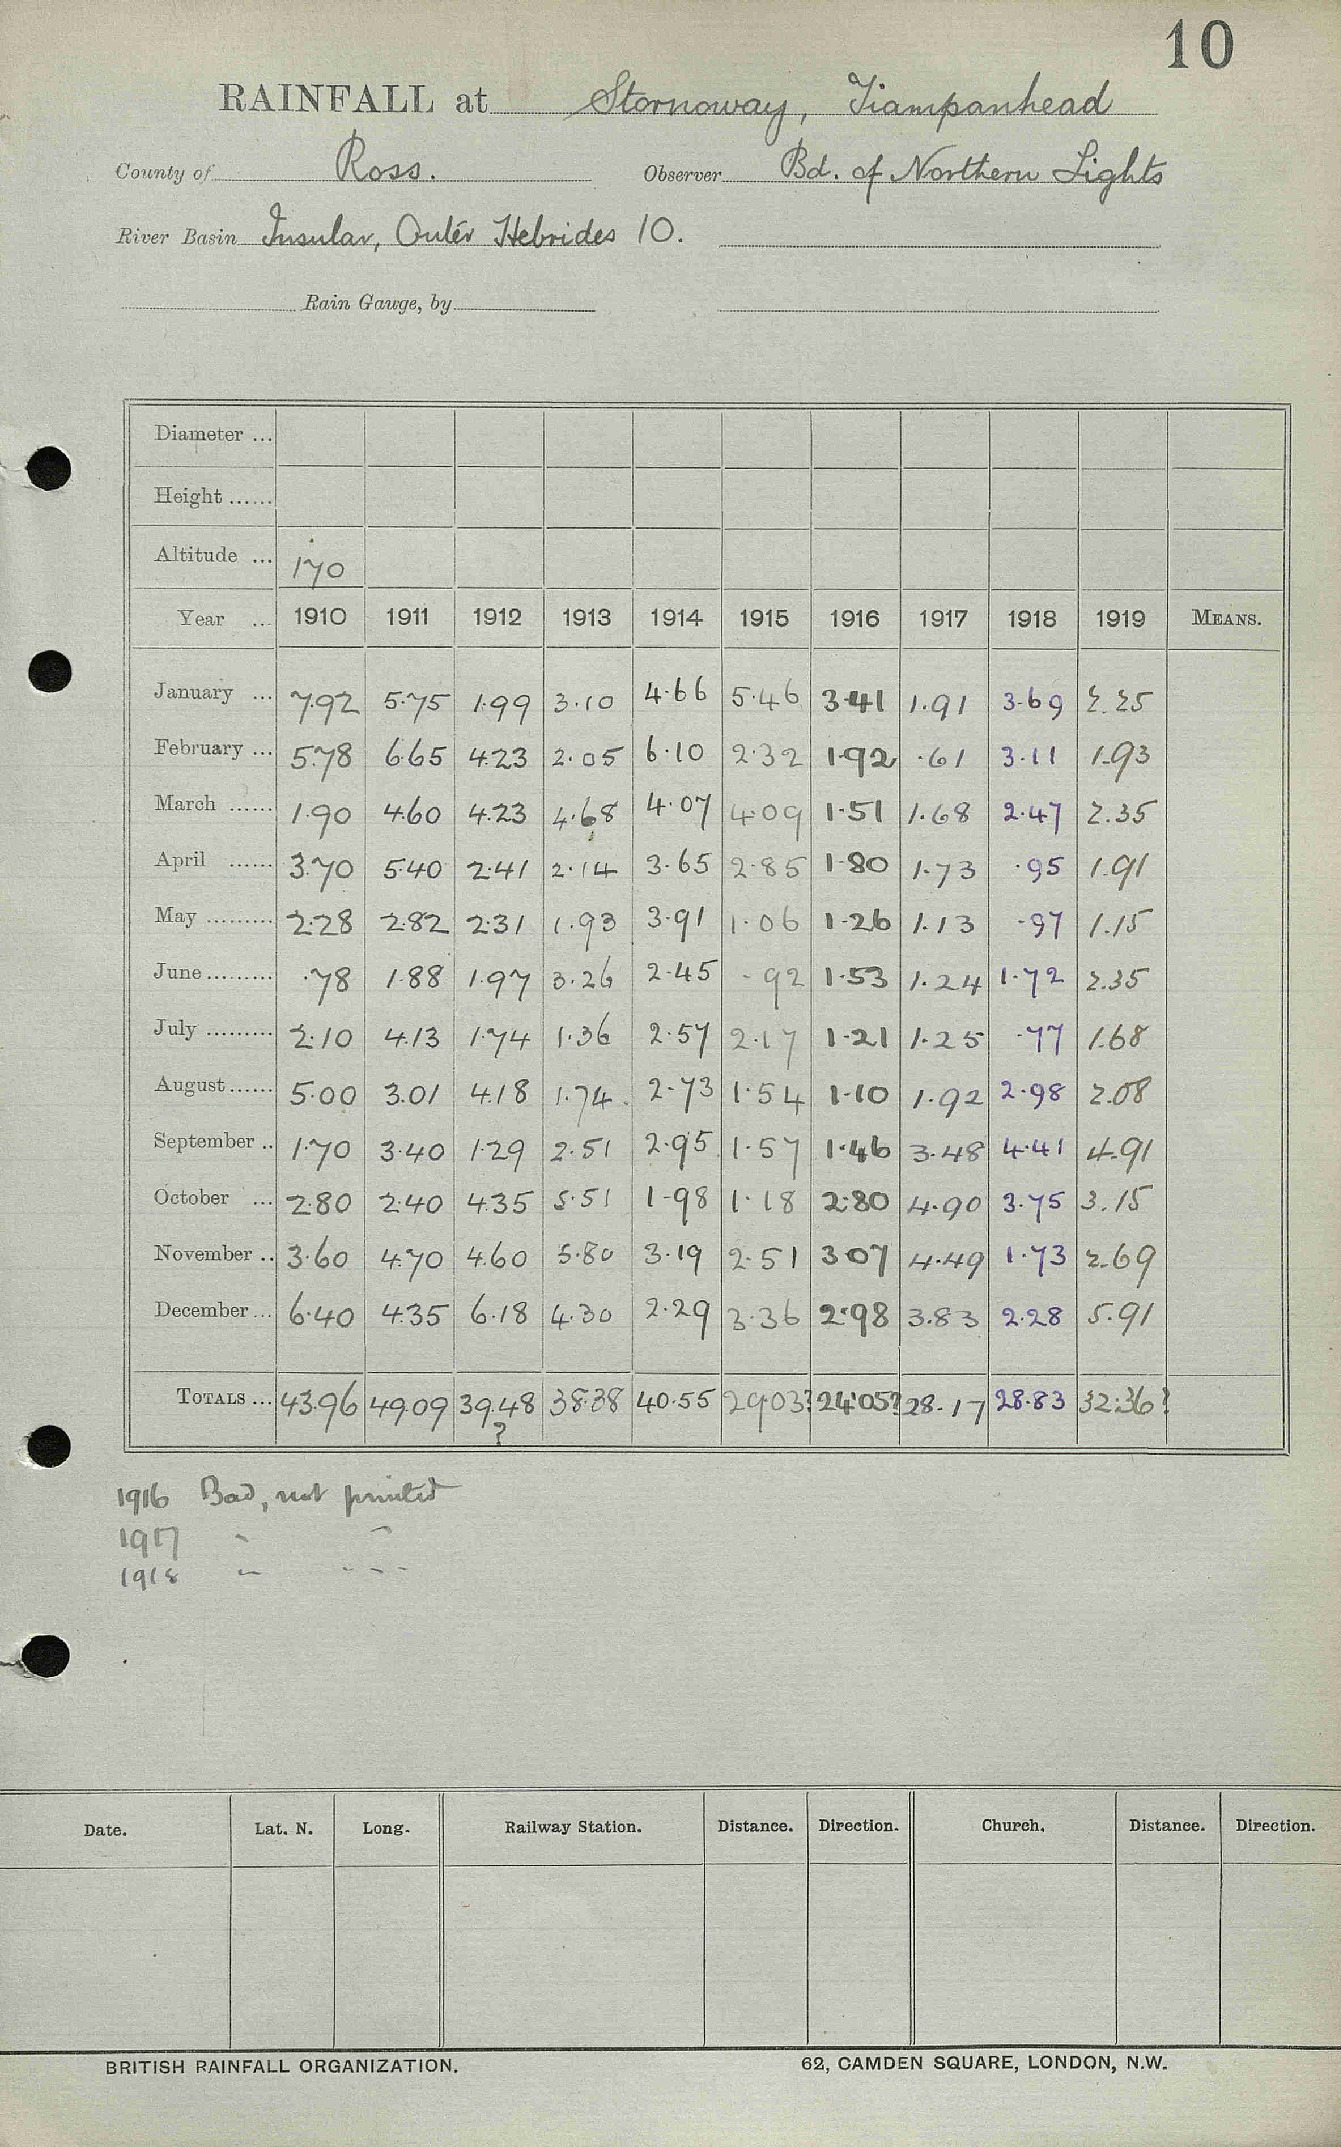 10
RAINFALL at Stornoway, Tiampanhead
County of Ross. Observer Bd. of Northern Lights
River Basin Insular, Outer Hebrides 10.
Rain Gauge, by
Diameter ...
Height ......
Altitude ... 170
Year ... 1910 1911 1912 1913 1914 1915 1916 1917 1918 1919 MEANS.
January ... 7.92 5.75 1.99 3.10 4.66 5.46 3.41 1.91 3.69 2.25
February ... 5.78 6.65 4.23 2.05 6.10 2.32 1.92 .61 3.11 1.93
March ...... 1.90 4.60 4.23 4.68 4.07 4.09 1.51 1.68 2.47 2.35
April ...... 3.70 5.40 2.41 2.14 3.65 2.85 1.80 1.73 .95 1.91
May ......... 2.28 2.82 2.31 1.93 3.91 1.06 1.26 1.13 .97 1.15
June ......... .78 1.88 1.97 3.26 2.45 .92 1.53 1.24 1.72 2.35
July ......... 2.10 4.13 1.74 1.36 2.57 2.17 1.21 1.25 .77 1.68
August ...... 5.00 3.01 4.18 1.74 2.73 1.54 1.10 1.92 2.98 2.08
September .. 1.70 3.40 1.29 2.51 2.95 1.57 1.46 3.48 4.41 4.91
October ... 2.80 2.40 4.35 5.51 1.98 1.18 2.80 4.90 3.75 3.15
November .. 3.60 4.70 4.60 5.80 3.19 2.51 3.07 4.49 1.73 2.69
December ... 6.40 4.35 6.18 4.30 2.29 3.36 2.98 3.83 2.28 5.91
TOTALS ... 43.96 49.09 39.48 ? 38.38 40.55 29.03? 24.05? 28.17 28.83 32.36?
1916 Bad, not printed
1917 " "
1918 " " "
Date. Lat. N. Long. Railway Station. Distance. Direction. Church. Distance. Direction.
BRITISH RAINFALL ORGANIZATION. 62, CAMDEN SQUARE, LONDON, N.W.